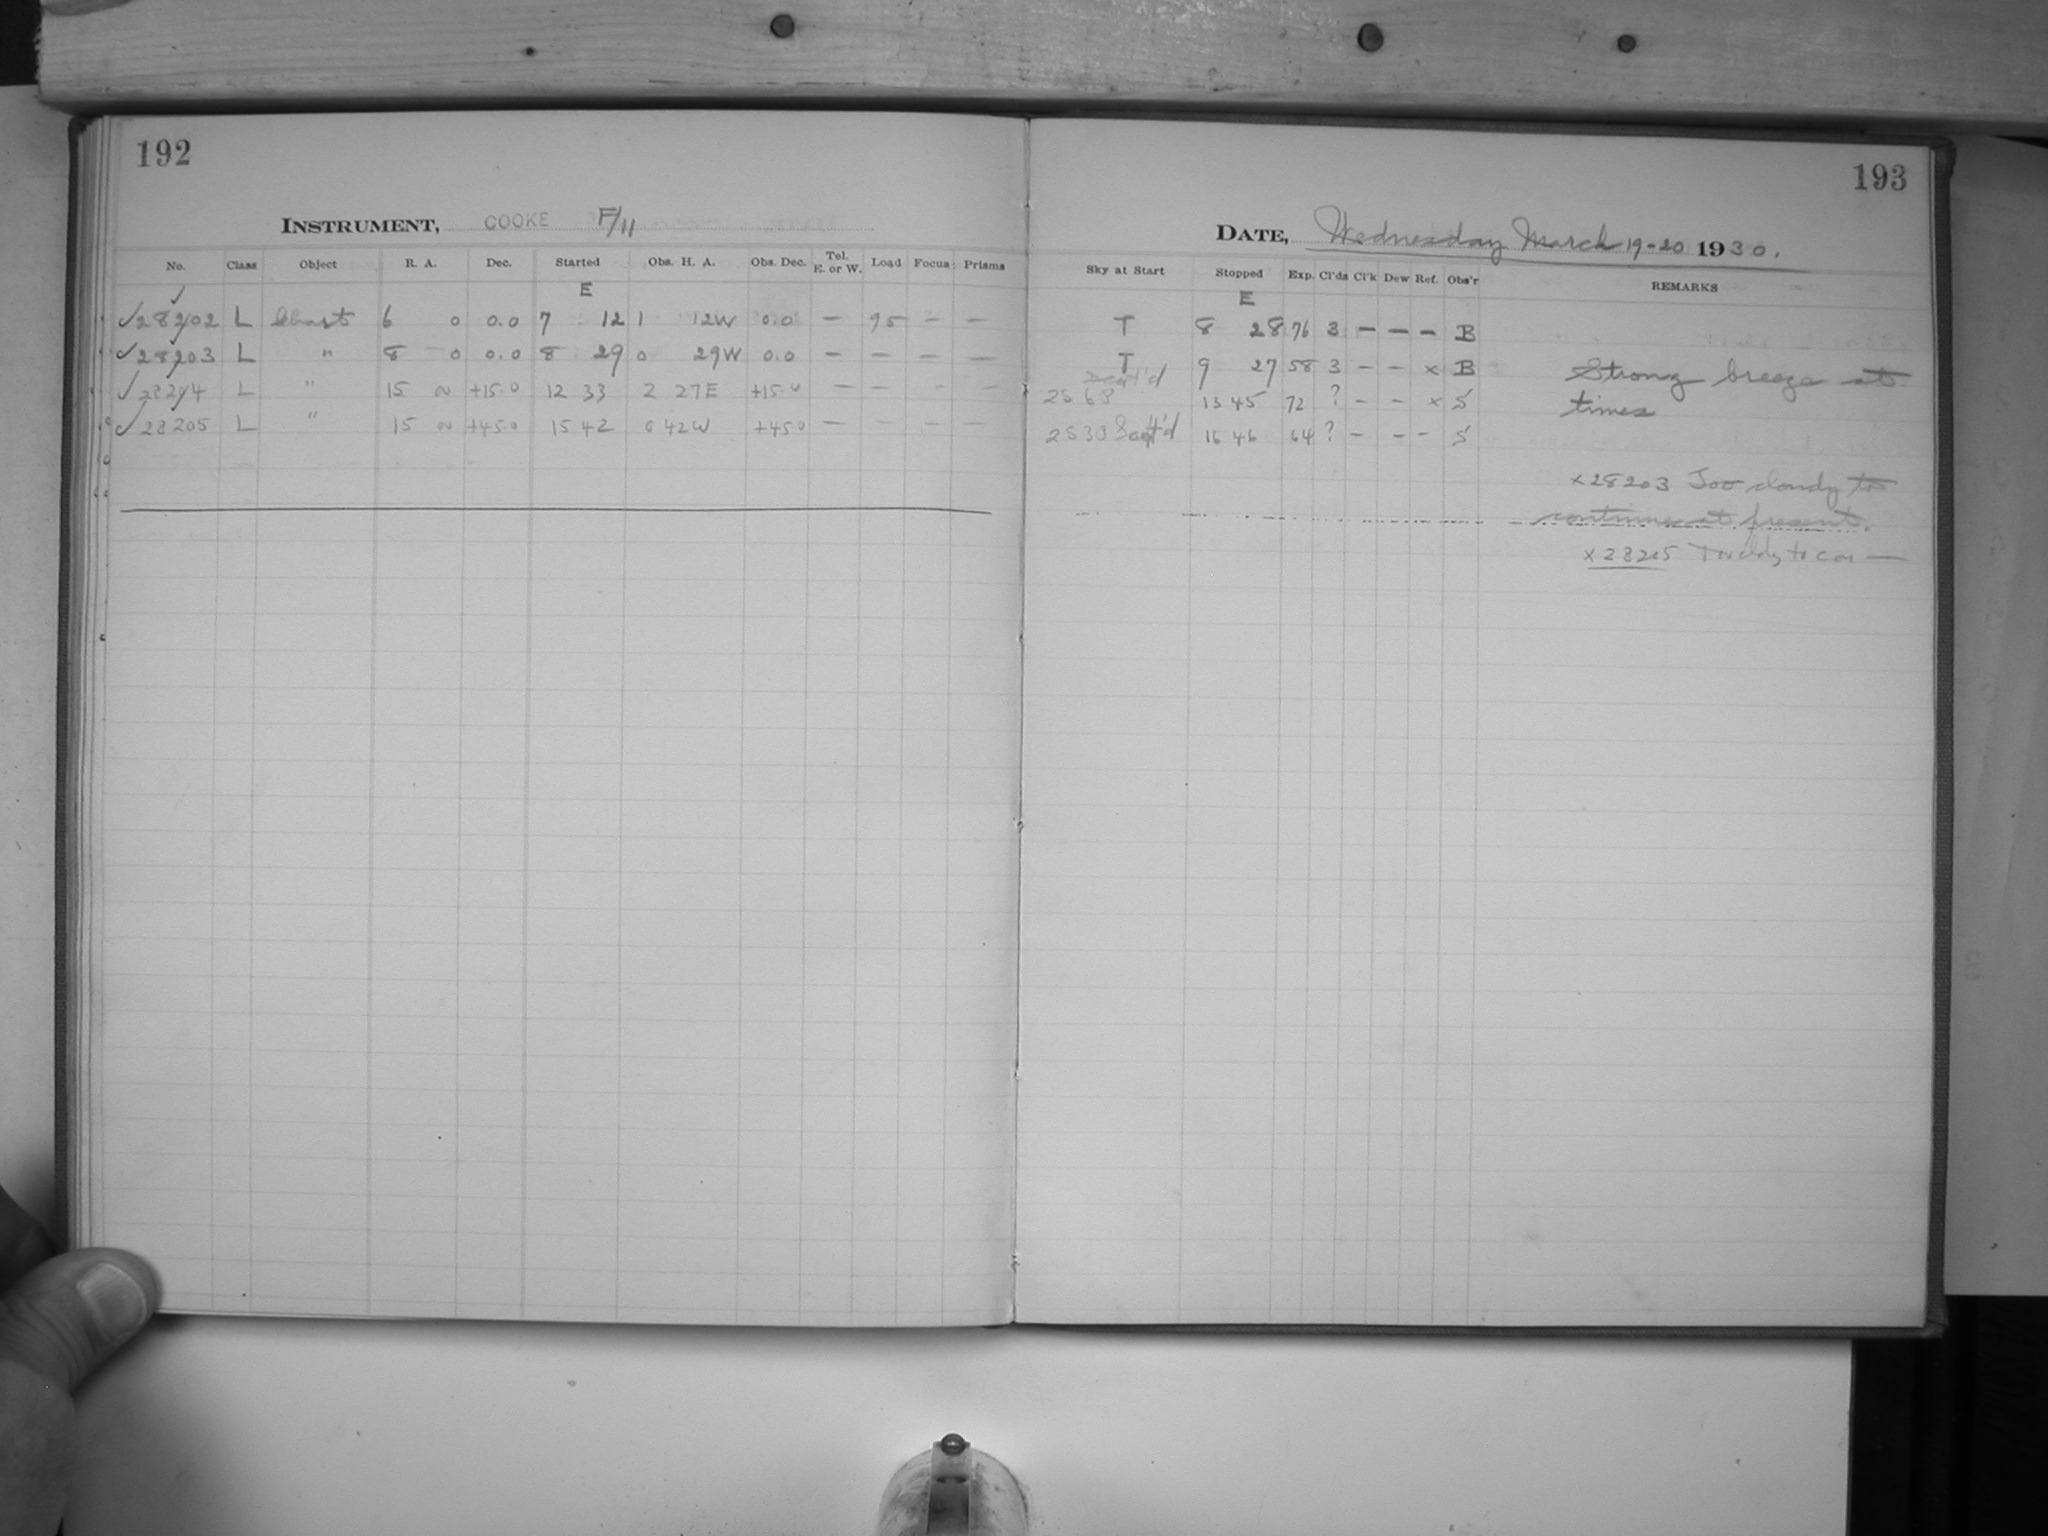 192
INSTRUMENT, COOKE F/11
No. Class Object R. A. Dec. Started Obs. H. A. Obs. Dec. Tel. E. or W. Load Focus Prisms
E
28202 L Chart 6 0 0.0 7 12 1 12W 0.0 — 95 — —
28203 L " 8 0 0.0 8 29 0 29W 0.0 — — — —
28204 L " 15 +15.0 12 33 2 27E +15.0 — — — —
28205 L " 15 +45.0 15 42 0 42W +45.0 — — — —
193
DATE, Wednesday March 19-20 1930.
Sky at Start Stopped Exp. Cl'ds Cl'k Dew Ref. Obs'r REMARKS
E
T 8 28 76 3 — — — B
T 9 27 58 3 — — x B Strong breeze at
Scat'd 13 45 72 ? — — x S times
2S30 Scatt'd 16 46 64 ? — — — S
x28203 Too cloudy to
continue at present.
x28205 to con —